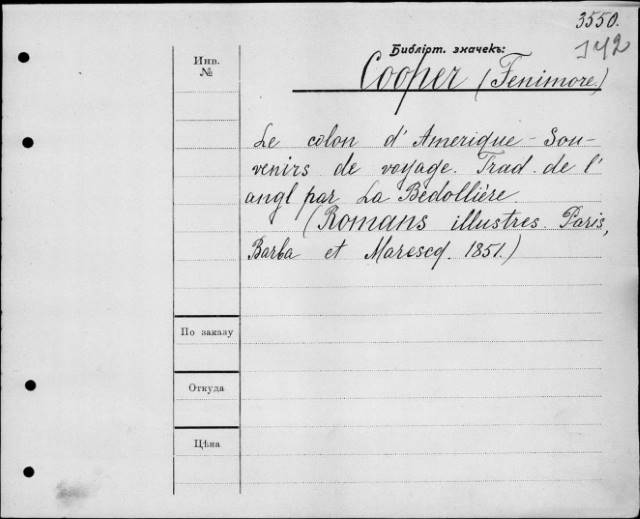 3550.
142
Библіот. значекъ:
Инв.
№
Cooper (Fenimore)
Le colon d'Amerique - Sou-
venirs de voyage. Trad. de l'
angl par La Bédollière.
(Romans illustres. Paris,
Barba et Marescq. 1851.)
По заказу
Откуда
Цѣна